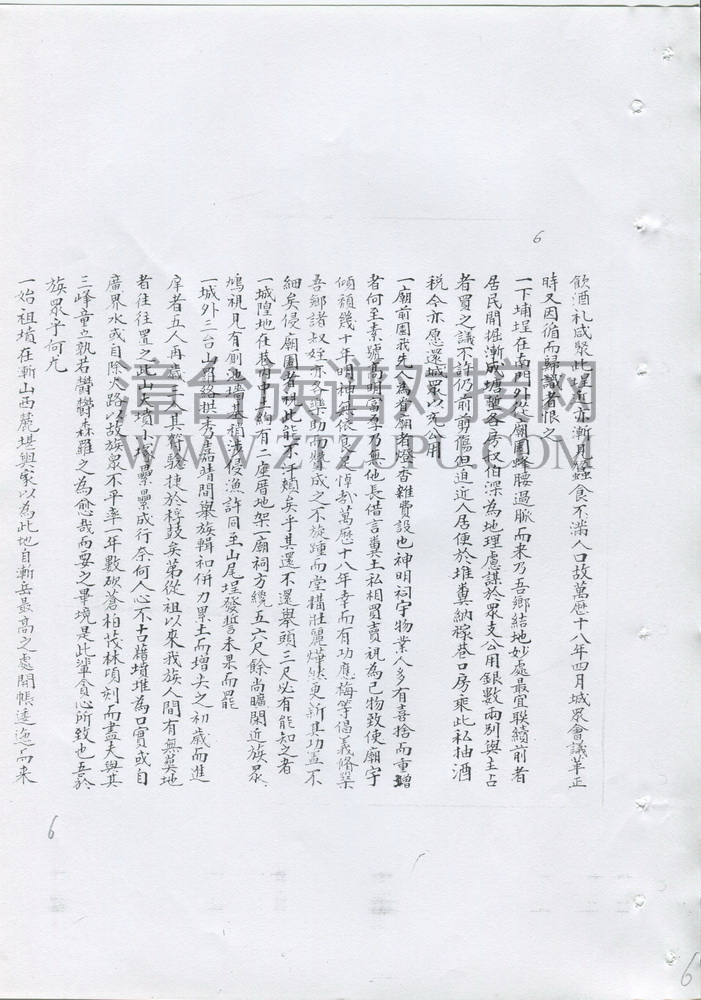 飲酒礼咸聚此埕近亦漸月蠶食不滿人口故萬曆十八年四月城眾會議革正
時又因循而歸識者恨之
一下埔埕在南門外從廟園蜂腰過脈而来乃吾鄉結地妙處最宜聯續前者
居民開掘漸成塘堅各房叔伯深為地理慮謀於眾支公用銀數兩別與主占
者買之議不許仍前剪傷但迫近人居便於堆糞納稼巷口房乘此私抽酒
稅今亦愿還城眾以充公用
一廟前園我先人為省廟者燈香雜費設也神明祠宇物業人多有喜捨而重增
者何至素號高明富厚子乃無他長借言糞土私相買賣視為己物致使廟宇
傾頹幾十年明神無依良可悼哉萬曆十八年幸而有功應梅等倡義脩築
吾鄉諸叔姪亦多樂助而贊成之不旋踵而堂構壯麗燁然更新其功盖不
細矣侵廟園者視此能不汗頰矣乎其還不還舉頭三尺必有能知之者
一城隍地在巷內中央約有二座厝地架一廟祠方纔五六尺餘尚曠閑近族眾
鳩視凡有廁池墻基相涉侵漁許同至山尾埕發誓未果而罷
一城外三台山聯絡拱秀嘉靖間舉族輯和併力累土而增大之初歲而進
庠者五人再歲三人其聲駿捷於桴鼓矣弟從祖以來我族人間有無奠地
者往往置之此山大墳小塚壘壘成行奈何人心不古藉墳堆為口實或自
廣界水或自除火路以故族眾不平率一年數砍蒼柏茂林項刻而盡夫與其
三峰童立孰若欝欝森羅之為愈哉而要之畢境是此輩貪心所致也吾於
族眾乎何尤
一始祖墳在漸山西麓堪輿家以為此地自漸岳最高之處開帳逶迤而来
6
6
6
漳台族谱对接网
WWW.ZTZUPU.COM